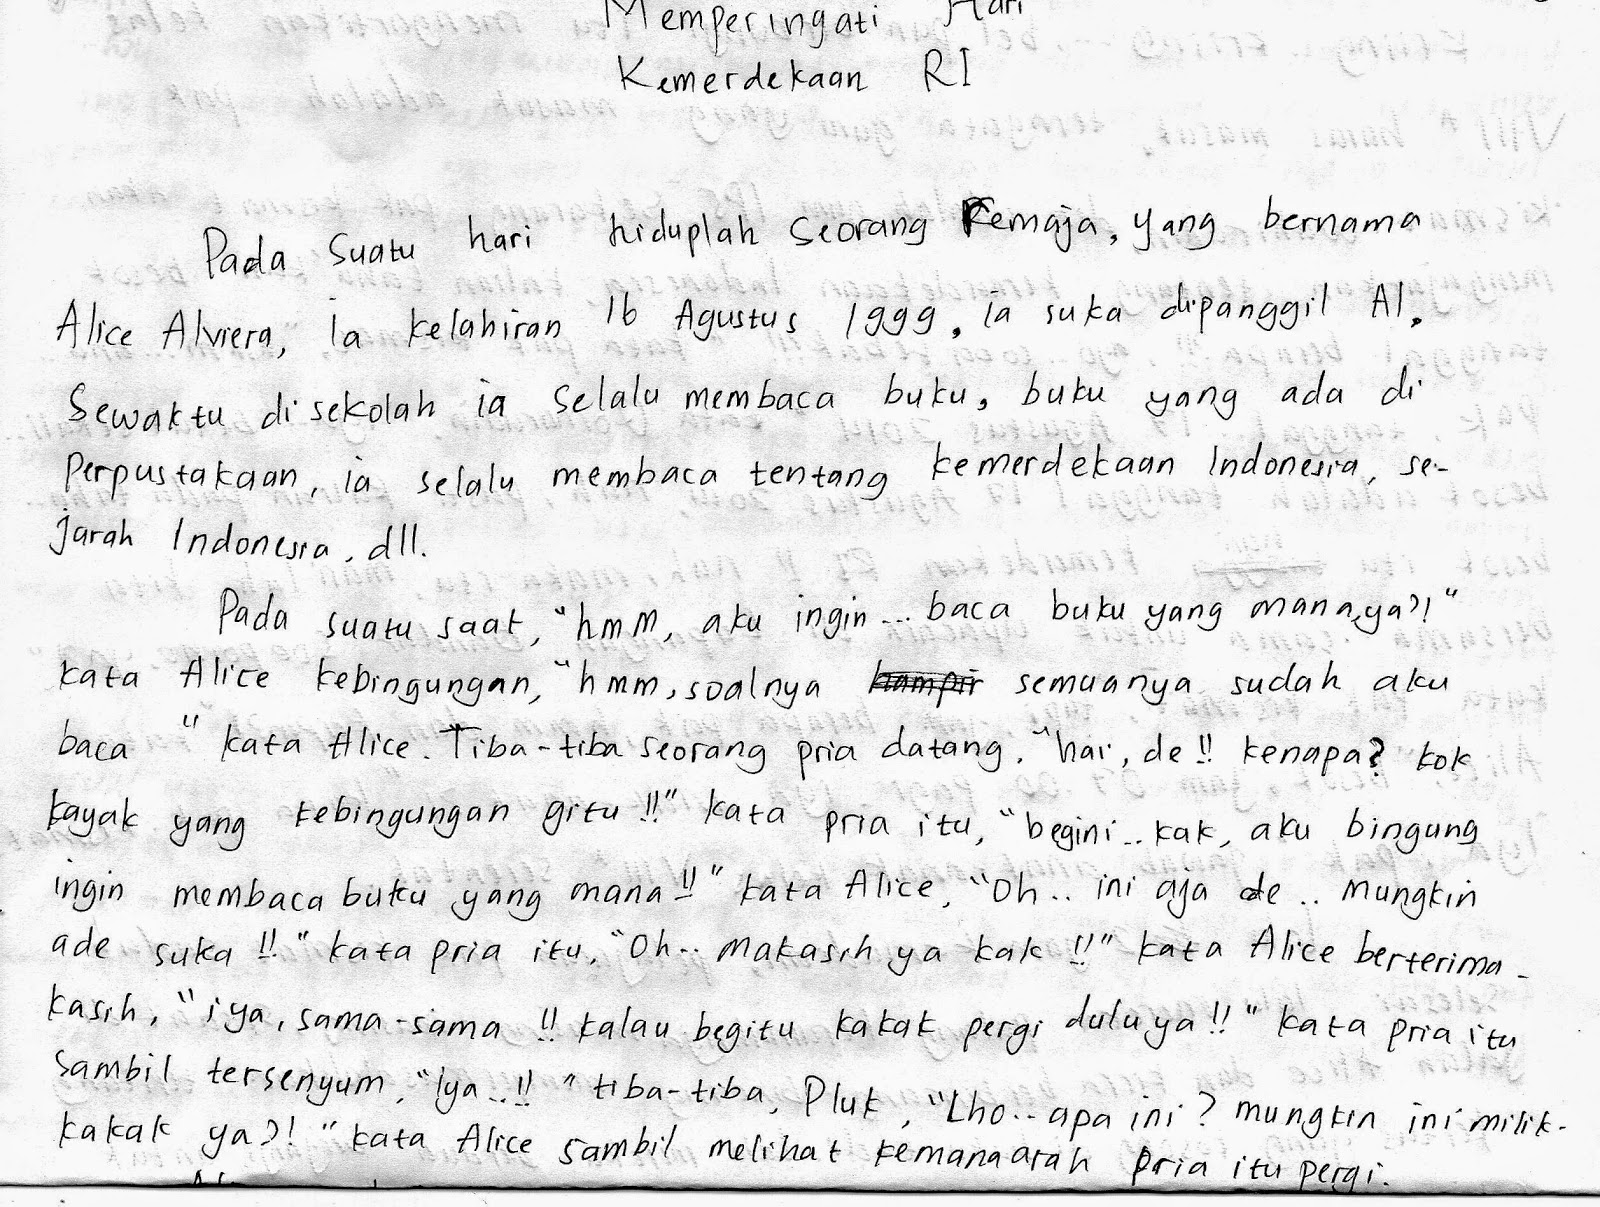 Memperingati Hari
Kemerdekaan RI
Pada suatu hari hiduplah seorang Remaja, yang bernama
Alice Alviera, ia kelahiran 16 Agustus 1999, ia suka dipanggil Al.
Sewaktu disekolah ia selalu membaca buku, buku yang ada di
Perpustakaan, ia selalu membaca tentang kemerdekaan Indonesia, se-
jarah Indonesia, dll.
Pada suatu saat, "hmm, aku ingin... baca buku yang mana,ya?!"
kata Alice kebingungan, "hmm, soalnya hampir semuanya sudah aku
baca" kata Alice. Tiba-tiba seorang pria datang, "hai, de!! kenapa? kok
kayak yang kebingungan gitu!!" kata pria itu, "begini.. kak, aku bingung
ingin membaca buku yang mana!!" kata Alice, "Oh.. ini aja de.. mungkin
ade suka!!" kata pria itu, "Oh.. makasih ya kak!!" kata Alice berterima-
kasih, "iya, sama-sama!! kalau begitu kakak pergi dulu ya!!" kata pria itu
sambil tersenyum, "Iya..!!" tiba-tiba, Pluk, "Lho.. apa ini? mungkin ini milik-
kakak ya?!" kata Alice sambil melihat kemanaarah pria itu pergi.